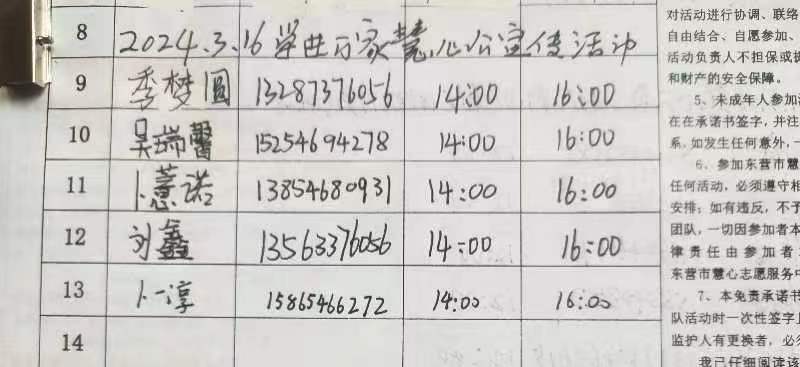 8 2024.3.16 学进万家慧心公宣传活动
9 秀梦圆 13287376056 14:00 16:00
10 吴瑞馨 15254694278 14:00 16:00
11 卜薏诺 13854680931 14:00 16:00
12 刘鑫 13563376056 14:00 16:00
13 卜一淳 15865466272 14:00 16:00
14
对活动进行协调、联络
自由结合、自愿参加、
活动负责人不担保或
和财产的安全保障。
5、未成年人参加
在在承诺书签字，并注
系，如发生任何意外，一
6、参加东营市慧
任何活动，必须遵守相
安排；如有违反，不予
团队，一切因参加者本
律责任由参加者
东营市慧心志愿服务中
7、本免责承诺书
队活动时一次性签字
监护人有更换者，必
我已仔细阅读该